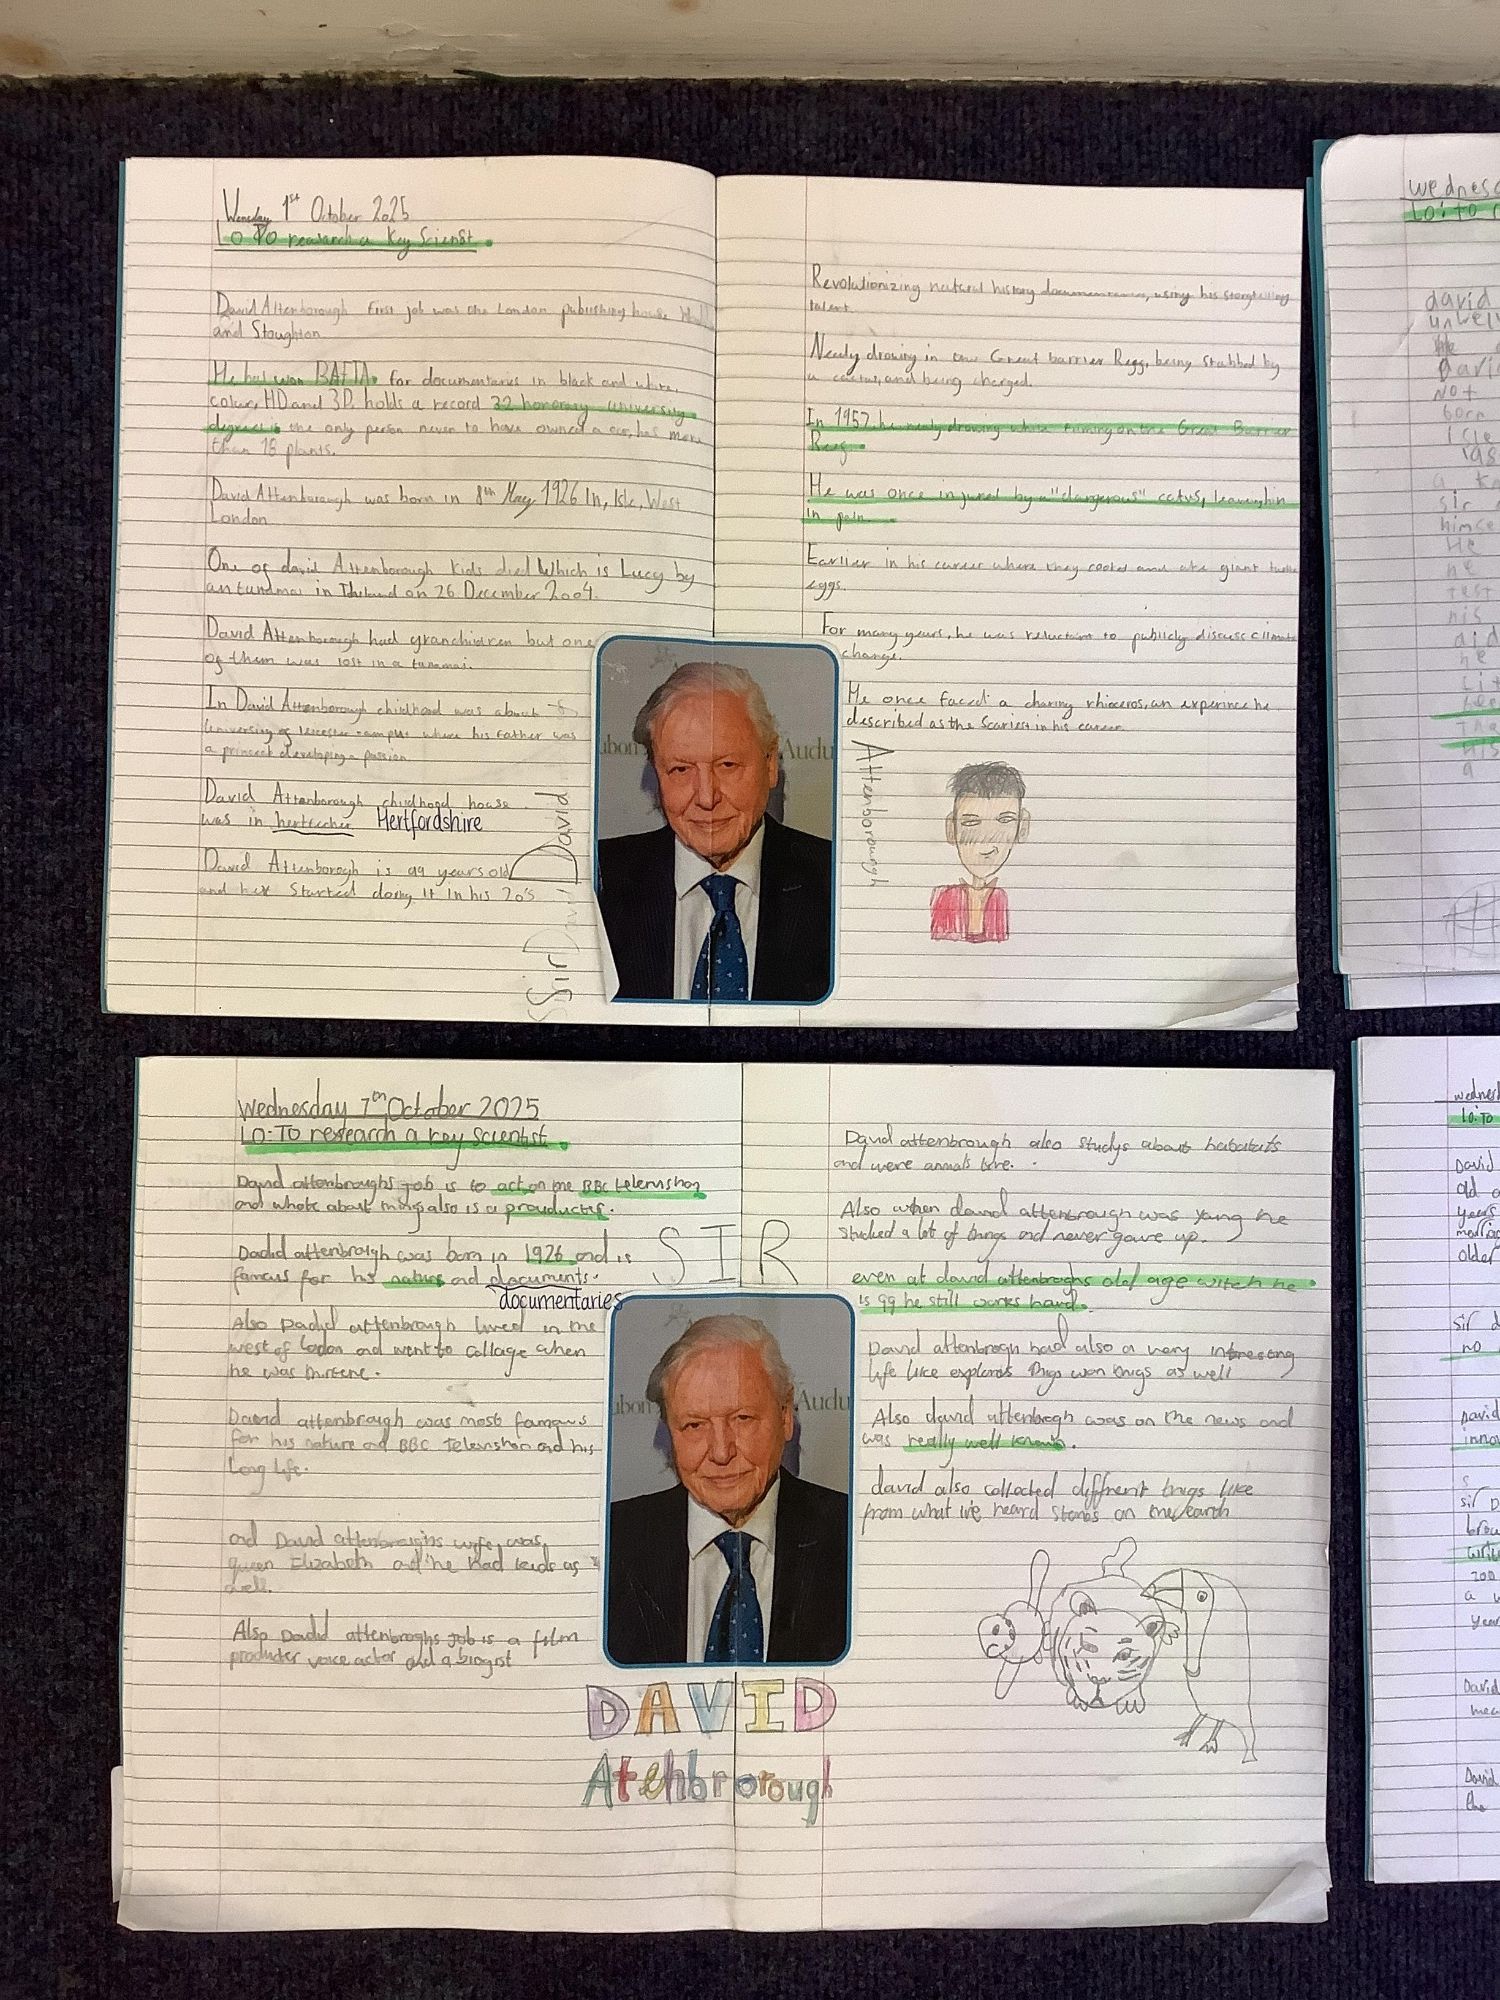 Wensday 1st October 2025
LO To research a Key Scienst.
David Attenborough First job was the London publishing house
and Stoughton
He has won BAFTA. for documentaries in black and white,
colour, HD and 3D, holds a record 32 honorary university
degrees is the only person never to have owned a car, has more
than 15 plants.
David Attenborough was born in 8th May 1926 In, Isle, West
London
One of david Attenborough kids died Which is Lucy by
an tunamai in Thiland on 26 December 2004.
David Attenborough had granchidren but one
of them was lost in a tunamai.
In David Attenborough childhood was about
University of leicester campus where his Father was
a developing a passion
David Attenborough childhood house
was in Hertfordshire
David Attenborogh is 99 years old
and has Started doing it In his 20's
Sir David
Attenborough
Revolutionizing natural history using his storytelling
talent.
Nealy drowing in the Great barrier Regg, being stabbed by
a cactus, and being charged.
In 1957 he nealy drowing while filming on the Great Barrier
Reeg.
He was once injured by a "dangerous" cctus, leaving him
in pain.
Earlier in his career where they cooked and ate giant turtle
eggs.
For many years, he was reluctant to publicly discuss climate
change.
He once faced a charing rhioceros, an experince he
described as the Scariest in his career.
Audu
Wednesday 7th October 2025
LO: To research a key scientist.
David attenbroughs job is to act on the BBC telervishon
and whats about thing also is a prouducter.
Dadid attenbrough was born in 1926 and is
famous for his nature and documents.
documentaries
Also Dadid attenbrough lived in the
west of lodon and went to collage when
he was thirtene.
David attenbrough was most famous
for his nature and BBC Telervishon and his
Long life.
and David attenbroughs wife was
queen Elizabeth and he had kids as
well.
Also Dadid attenbroghs job is a film
producter voice actor and a
SIR
Audu
DAVID
Atehbrorough
David attenbrough also studys about habatats
and were annals live.
Also when david attenbrough was yong he
studied a lot of things and never gave up.
even at david attenbroughs old age witch he
is 99 he still works hard.
David attenbrogh had also a very intresting
life like explored thigs won thigs as well
Also david attenbrogh was on the news and
was really well known.
david also collected diffrent thigs like
from what ive heard stones on the earth
wednesd
LO: To
david
david
not
born
Isle
a
sir
himse
he
he
test
his
he
wednes
LO: To
David
old
years
older
sir d
no
David
innov
sir D
writi
200
a
year
David
David
the